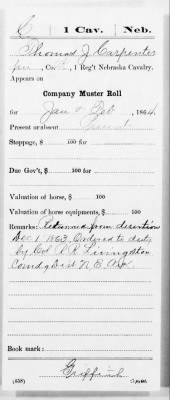 C | 1 Cav. | Neb.
Thomas J. Carpenter
, Co. , 1 Reg't Nebraska Cavalry.
Appears on
Company Muster Roll
for Jan & Feb, 1864.
Present or absent Present
Stoppage, $ 100 for
Due Gov't, $ 100 for
Valuation of horse, $ 100
Valuation of horse equipments, $ 100
Remarks: Returned from desertion
Dec 1 1863 Ordered to duty
by Col R R Livingston
Comdg Dist N. E. Ark.
Book mark:
(358)
Copyist.